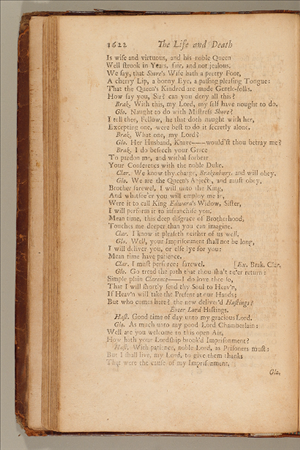 1622 The Life and Death
Is wise and virtuous, and his noble Queen
Well strook in Years, fair, and not jealous.
We say, that Shore's Wife hath a pretty Foot,
A cherry Lip, a bonny Eye, a passing pleasing Tongue:
That the Queen's Kindred are made Gentle-folks.
How say you, Sir? can you deny all this?
Brak. With this, my Lord, my self have nought to do.
Glo. Naught to do with Mistress Shore?
I tell thee, Fellow, he that doth naught with her,
Excepting one, were best to do it secretly alone.
Brak. What one, my Lord?
Glo. Her Husband, Knave——would'st thou betray me?
Brak. I do beseech your Grace
To pardon me, and withal forbear
Your Conference with the noble Duke.
Clar. We know thy charge, Brakenbury, and will obey.
Glo. We are the Queen's Abjects, and must obey.
Brother farewel, I will unto the King,
And whatsoe'er you will employ me in,
Were it to call King Edward's Widow, Sister,
I will perform it to infranchise you.
Mean time, this deep disgrace of Brotherhood,
Touches me deeper than you can imagine.
Clar. I know it pleaseth neither of us well.
Glo. Well, your Imprisonment shall not be long,
I will deliver you, or else lye for you:
Mean time have patience.
Clar. I must perforce: farewel. [Ex. Brak. Clar.
Glo. Go tread the path that thou shalt ne'er return:
Simple plain Clarence——I do love thee so,
That I will shortly send thy Soul to Heav'n,
If Heav'n will take the Present at our Hands:
But who comes here? the new deliver'd Hastings?
Enter Lord Hastings.
Hast. Good time of day unto my gracious Lord.
Glo. As much unto my good Lord Chamberlain:
Well are you welcome to this open Air,
How hath your Lordship brook'd Imprisonment?
Hast. With patience, noble Lord, as Prisoners must:
But I shall live, my Lord, to give them thanks
That were the cause of my Imprisonment.
Glo.